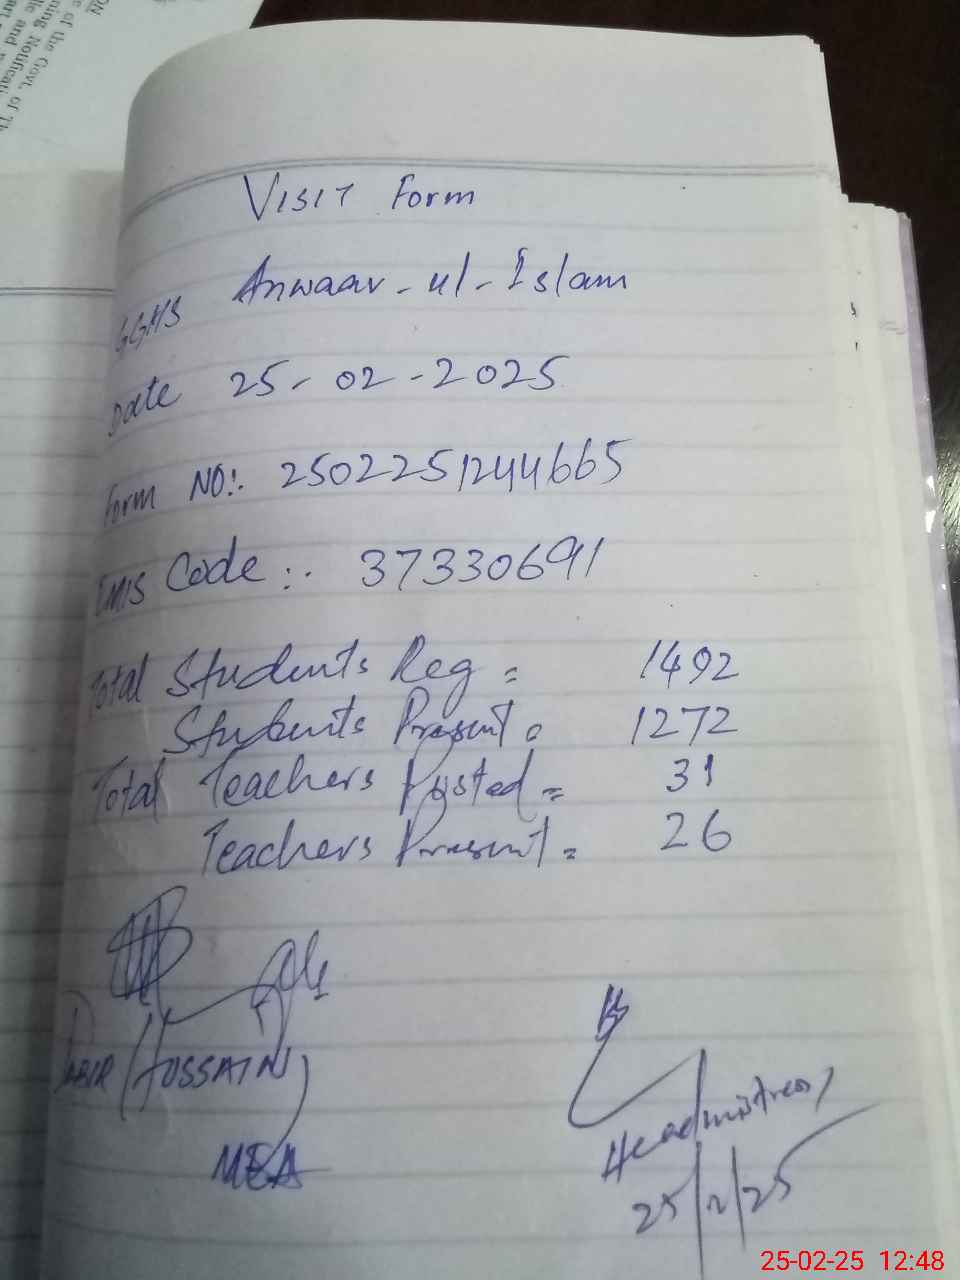 ON
of the Govt. of Th
ning Notificati
lic and
art
VISIT Form
GGMS Anwaar-ul-Islam
Date 25-02-2025
Form NO:. 2502251244665
EMIS Code:. 37330691
Total Students Reg = 1492
Students Present = 1272
Total Teachers Posted = 31
Teachers Present = 26
HUSSAIN
MEA
Headmistress
25/2/25
25-02-25 12:48